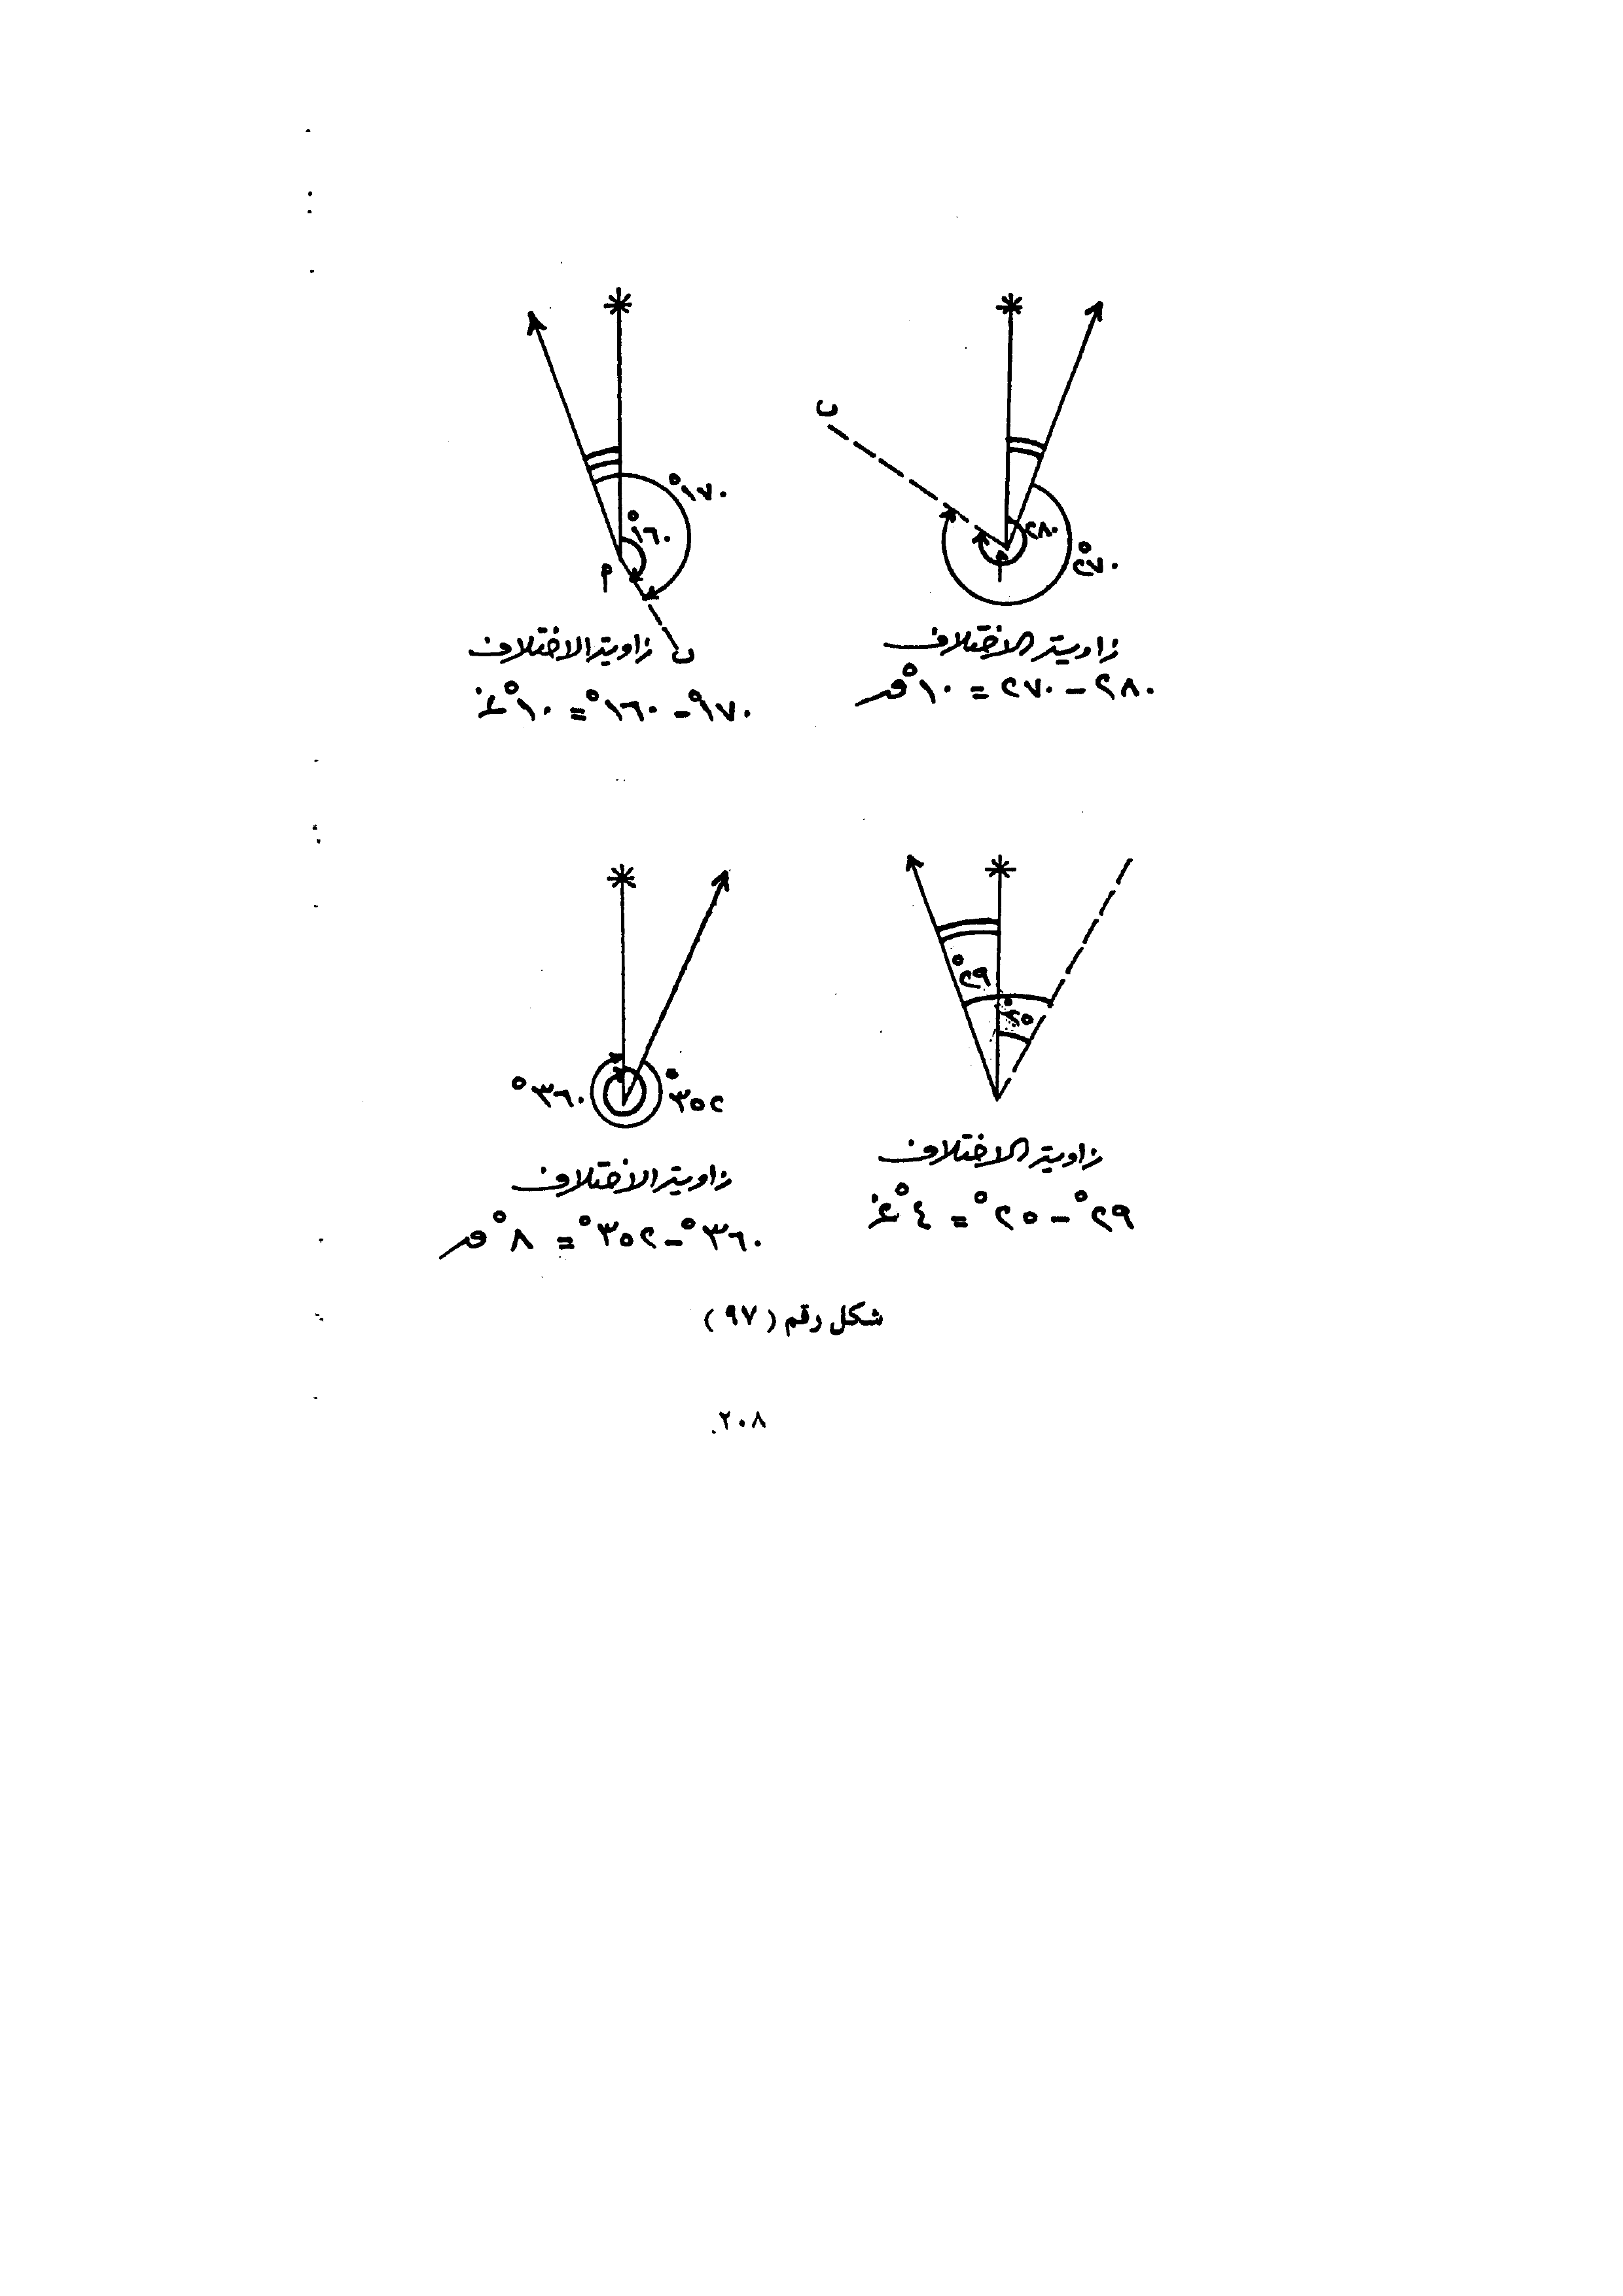 ن
°٢٨٠
°٢٧٠
م
زاوية الاختلاف
٢٨٠ - ٢٧٠ = ١٠° ق
°١٧٠
°١٦٠
م
ن
زاوية الاختلاف
١٧٠° - ١٦٠° = ١٠° غ
°٢٩
°٢٥
زاوية الاختلاف
٢٩° - ٢٥° = ٤° غ
°٣٦٠
°٣٥٢
زاوية الاختلاف
٣٦٠° - ٣٥٢° = ٨° ق
شكل رقم (٩٧)
٢٠٨